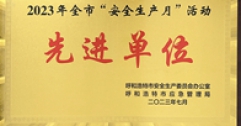 2023年全市“安全生产月”活动
先进单位
呼和浩特市安全生产委员会办公室
呼和浩特市应急管理局
二〇二三年七月